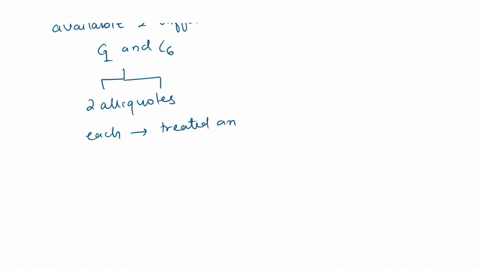 available 2
G and C6
2 aliquotes
each → treated an